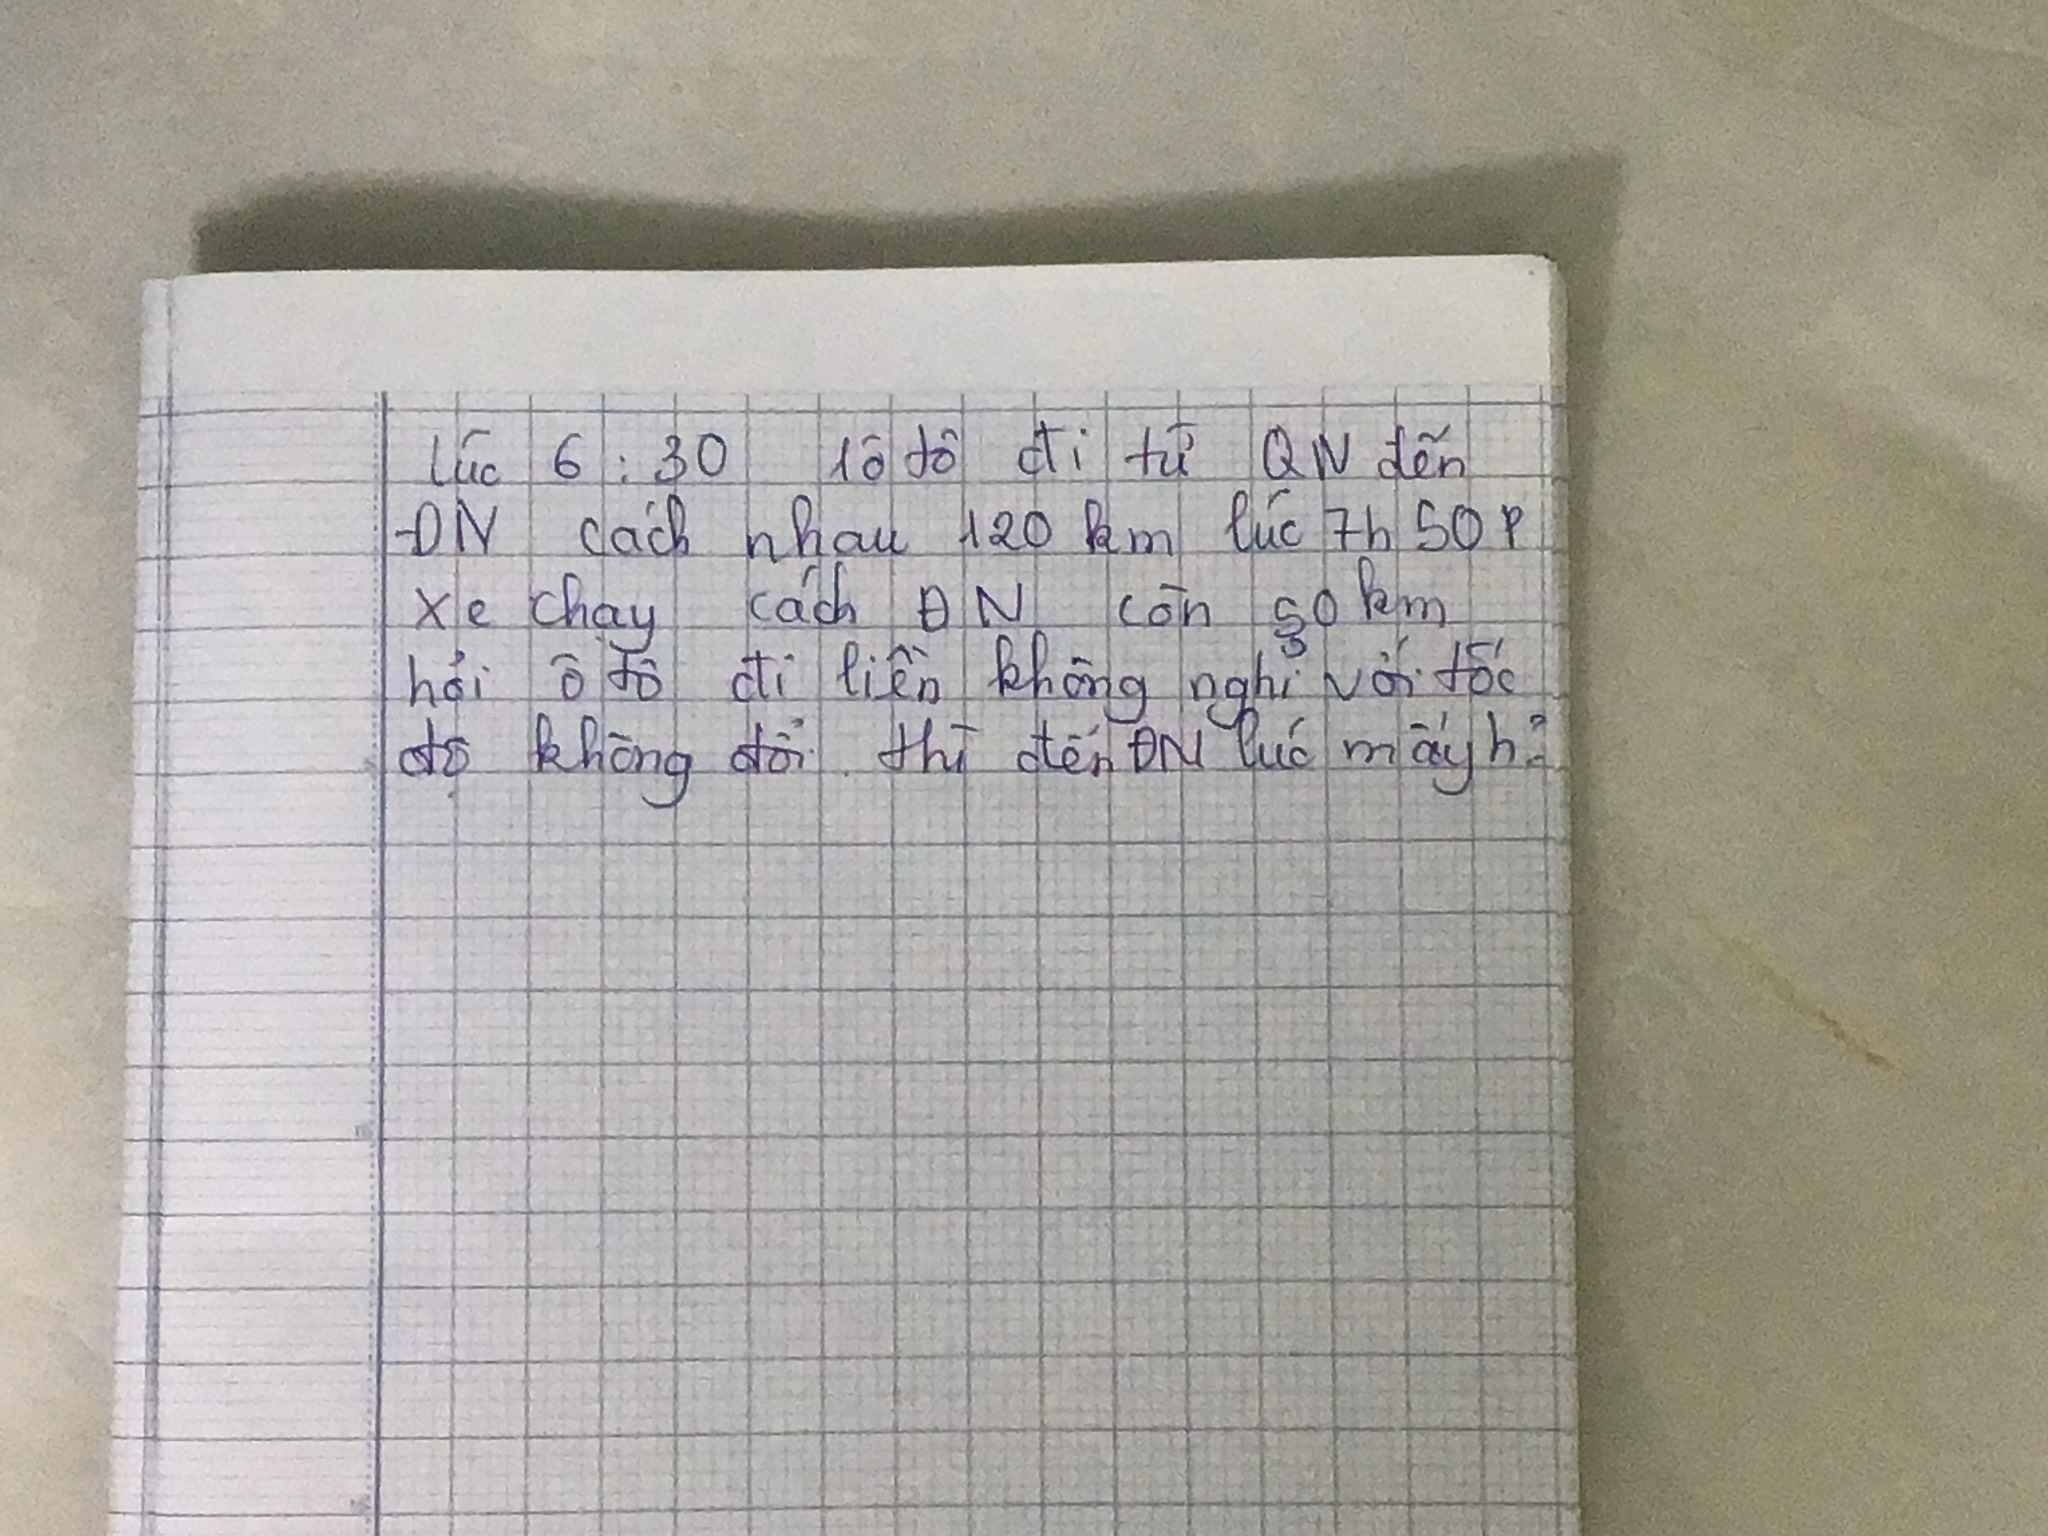 Lúc 6:30 1 ô tô đi từ QN đến
ĐN cách nhau 120 km lúc 7h 50 P
Xe chạy cách ĐN còn 50 km
hỏi ô tô đi liền không nghỉ với tốc
độ không đổi. thì đến ĐN lúc mấy h?